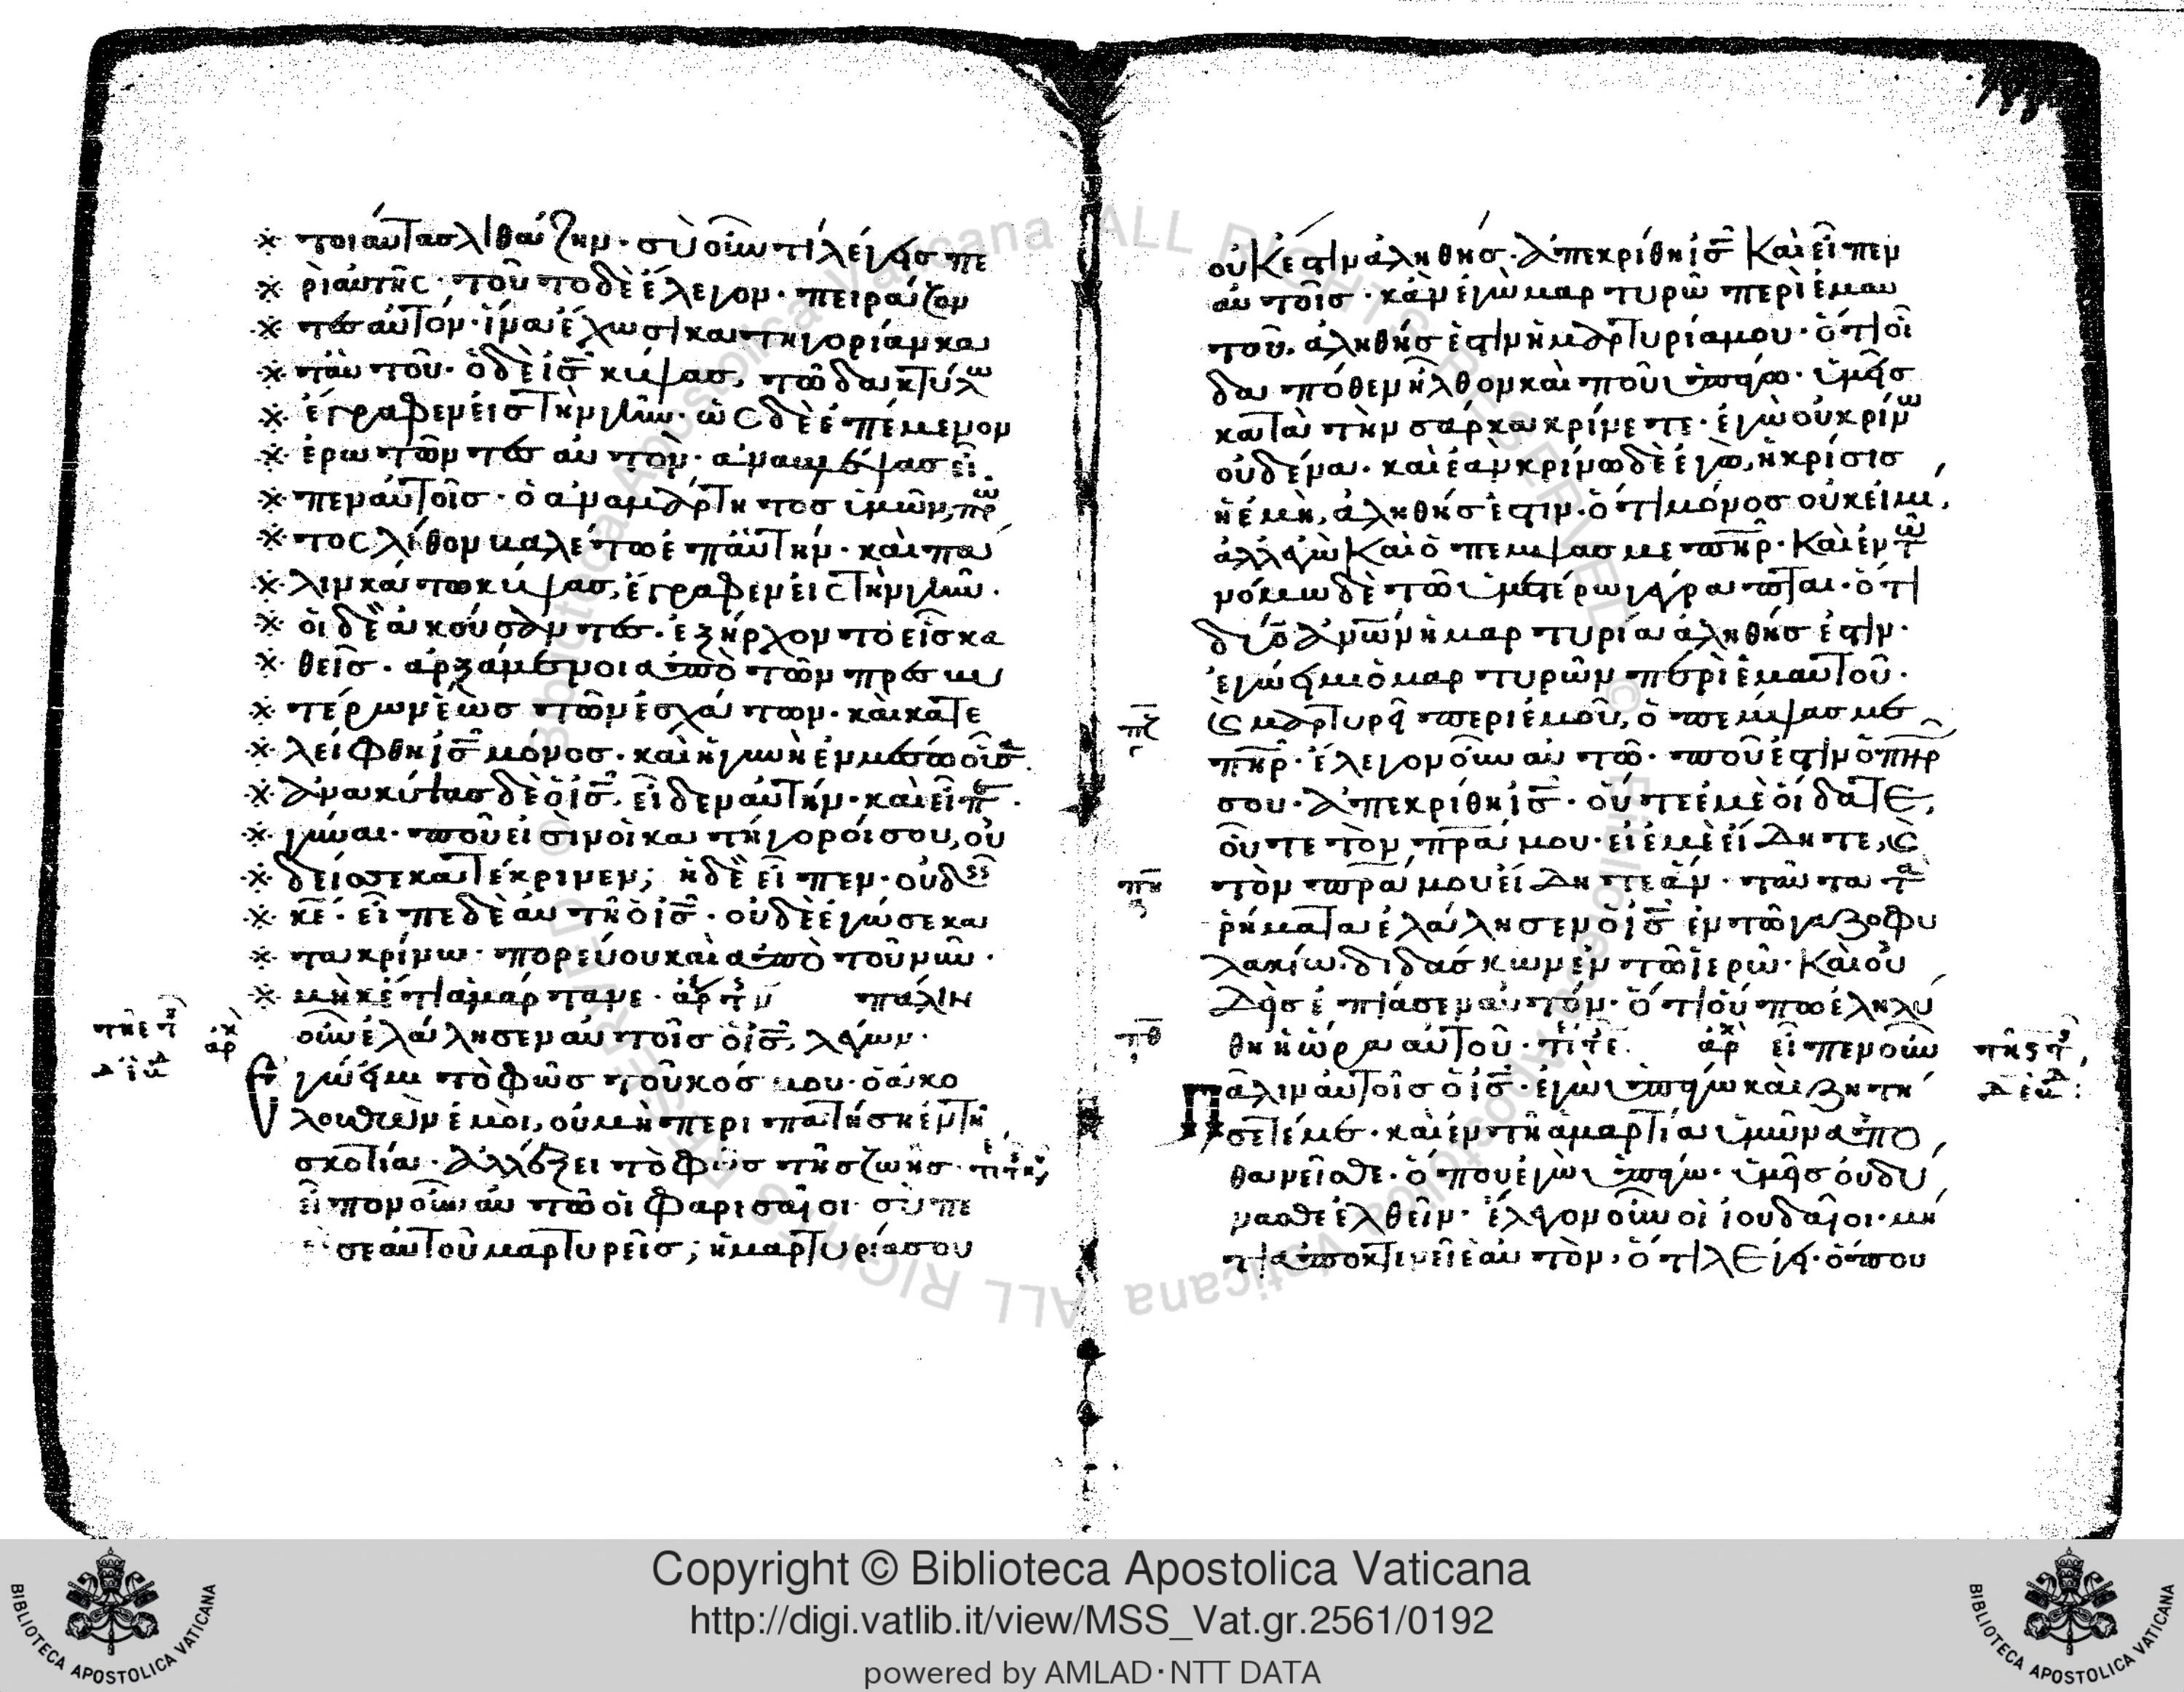 ※ τοιαύτας λιθάζειν· σὺ οὖν τί λέγεις πε
※ ρὶ αὐτῆς· τοῦτο δὲ ἔλεγον· πειράζον
※ τες αὐτόν· ἵνα ἔχωσι κατηγορίαν κα
※ τ αὐτοῦ· ὁ δὲ ἰς κύψας, τῶ δακτύλω
※ ἔγραφεν εἰς τὴν γῆν· ὡς δὲ ἐπέμενον
※ ἐρωτῶντες αὐτὸν· ἀνακύψας εἶ
※ πεν αὐτοῖς· ὁ ἀναμάρτητος ὑμῶν, πρῶ
※ τος λίθον βαλέτω ἐπ αὐτήν· καὶ πά
※ λιν κάτω κύψας, ἔγραφεν εἰς τὴν γῆν·
※ οἱ δὲ ἀκούσαντες· ἐξήρχοντο εἷς κα
※ θεῖς· ἀρξάμενοι ἀπὸ τῶν πρεσβυ
※ τέρων ἕως τῶν ἐσχάτων· καὶ κατε
※ λείφθη ἰς μόνος· καὶ ἡ γυνὴ ἐν μέσω οὖσα·
※ ἀνακύψας δὲ ὁ ἰς, εἶδεν αὐτήν· καὶ εἶπε·
※ γύναι· ποῦ εἰσὶν οἱ κατήγοροί σου, οὐ
※ δείς σε κατέκρινεν; ἡ δὲ εἶπεν· οὐδεὶς
※ κε· εἶπε δὲ αὐτῆ ὁ ἰς· οὐδὲ ἐγώ σε κα
※ τακρίνω· πορεύου καὶ ἀπὸ τοῦ νῦν·
※ μηκέτι ἁμάρτανε· πάλιν
οὖν ἐλάλησεν αὐτοῖς ὁ ἰς, λέγων·
Ἐγώ εἰμι τὸ φῶς τοῦ κόσμου· ὁ ἀκο
λουθῶν ἐμοὶ, οὐ μὴ περιπατήση ἐν τῆ
σκοτία· ἀλλ ἕξει τὸ φῶς τῆς ζωῆς·
εἶπον οὖν αὐτῶ οἱ φαρισαῖοι σὺ πε
ρὶ σεαυτοῦ μαρτυρεῖς; ἡ μαρτυρία σου
οὐκ ἔστιν ἀληθής· ἀπεκρίθη ἰς καὶ εἶπεν
αὐτοῖς· κἂν ἐγὼ μαρτυρῶ περὶ ἐμαυ
τοῦ, ἀληθής ἐστιν ἡ μαρτυρία μου· ὅτι οἶ
δα πόθεν ἦλθον καὶ ποῦ ὑπάγω· ὑμεῖς
κατὰ τὴν σάρκα κρίνετε· ἐγὼ οὐ κρίνω
οὐδένα· καὶ ἐὰν κρίνω δὲ ἐγὼ, ἡ κρίσις
ἡ ἐμὴ, ἀληθής ἐστιν· ὅτι μόνος οὐκ εἰμὶ,
ἀλλ ἐγὼ καὶ ὁ πέμψας με πηρ· καὶ ἐν τῶ
νόμω δὲ τῶ ὑμετέρω γέγραπται· ὅτι
δύο ἀνων ἡ μαρτυρία ἀληθής ἐστιν·
ἐγώ εἰμι ὁ μαρτυρῶν περὶ ἐμαυτοῦ·
πζ καὶ μαρτυρεῖ περὶ ἐμοῦ, ὁ πέμψας με
πηρ· ἔλεγον οὖν αὐτῶ· ποῦ ἐστὶν ὁ πηρ
σου· ἀπεκρίθη ἰς· οὔτε ἐμὲ οἴδατε,
οὔτε τὸν πρα μου· εἰ ἐμὲ εἴδητε, καὶ
πη τὸν πρα μου εἴδητε ἄν· ταῦτα τὰ
ῥήματα ἐλάλησεν ὁ ἰς ἐν τῶ γαζοφυ
λακίω, διδάσκων ἐν τῶ ἱερῶ· καὶ οὐ
δεὶς ἐπίασεν αὐτόν· ὅτι οὔπω ἐληλύ
πθ θη ἡ ὥρα αὐτοῦ· εἶπεν οὖν
Πάλιν αὐτοῖς ὁ ἰς· ἐγὼ ὑπάγω καὶ ζητή
σετέ με· καὶ ἐν τῆ ἁμαρτία ὑμῶν ἀπο
θανεῖσθε· ὅπου ἐγὼ ὑπάγω· ὑμεῖς οὐ δύ
νασθε ἐλθεῖν· ἔλεγον οὖν οἱ ἰουδαῖοι· μή
τι ἀποκτενεῖ ἑαυτὸν, ὅτι λέγει· ὅπου
Copyright © Biblioteca Apostolica Vaticana
http://digi.vatlib.it/view/MSS_Vat.gr.2561/0192
powered by AMLAD·NTT DATA